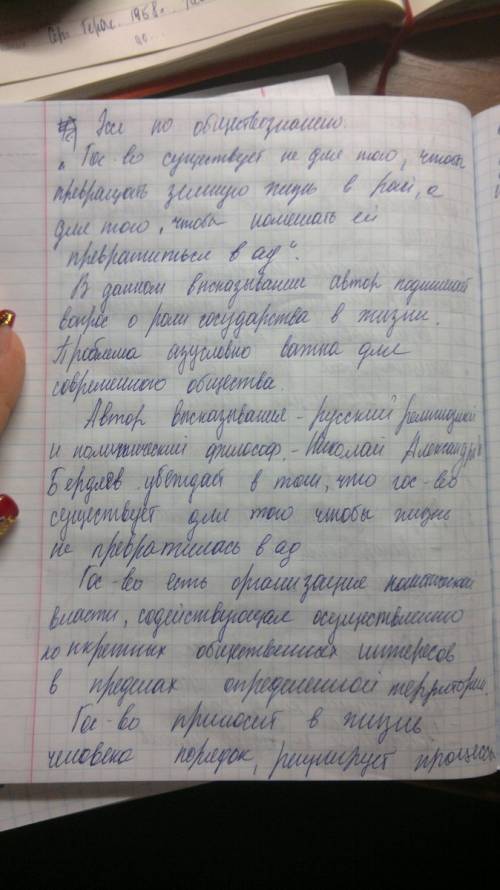 Сер. Герас. 1968.
Эссе по обществознанию.
„Гос-во существует не для того, чтобы
превращать земную жизнь в рай, а
для того, чтобы помешать ей
превратиться в ад“.
В данном высказывании автор поднимает
вопрос о роли государства в жизни.
Проблема азусловно важна для
современного общества.
Автор высказывания - русский религиозный
и политический философ - Николай Александр
Бердяев убеждал в том, что гос-во
существует для того чтобы жизнь
не превратилась в ад
Гос-во есть организация политической
власти, содействующая осуществлению
конкретных общественных интересов
в пределах определенной территории.
Гос-во приносит в жизнь
человека порядок, регулирует процессы